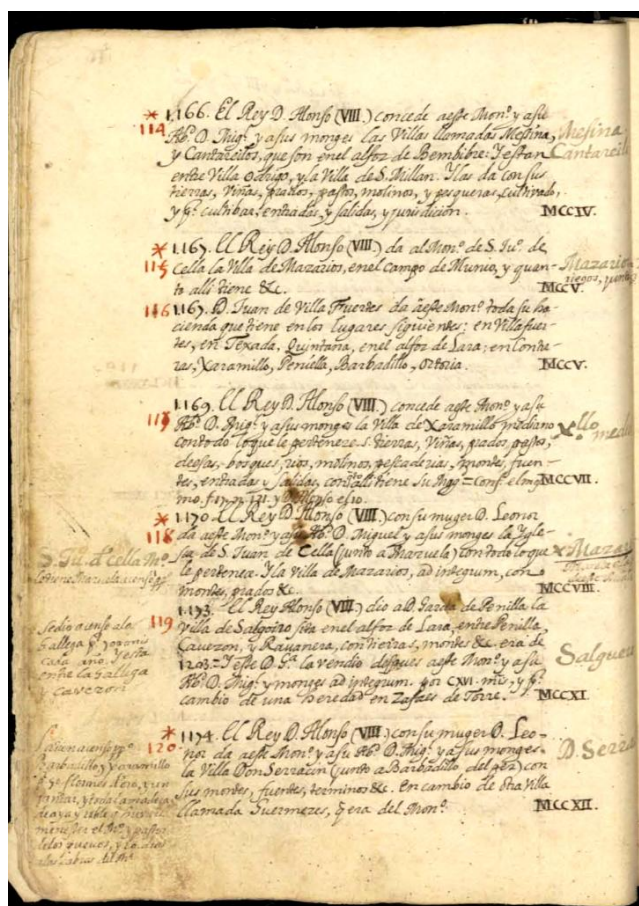 * 1166. El Rey D. Alonso (VIII.) concede a este Monº. y a su
114 Abº. D. Mig¹. y a sus monges las Villas llamadas Messina,
y Cantareilos, que son en el alfoz de Bembibre: Y estan
entre Villa Odrigo, y la Villa de S. Millan. Y las da con sus
tierras, Viñas, prados, pastos, molinos, y pesqueras, cultivado,
y pª. cultibar, entradas, y salidas, y jurisdicion. MCCIV.
Messina
Cantareilo
* 1167. El Rey D. Alonso (VIII.) da al Monº. de S. Juº. de
115 Cella la Villa de Mazarios, en el campo de Munio, y quan-
to alli tiene &c. MCCV.
Mazarios
116 1167. D. Juan de Villa Fuertes da a este Monº. toda su ha-
cienda que tiene en los lugares siguientes: en Villafuer-
tes, en Texada, Quintana, en el alfoz de Lara; en Contre-
ras, Xaramillo, Peniella, Barbadillo, Ortoria. MCCV.
1169. El Rey D. Alonso (VIII.) concede a este Monº. y a su
117 Abº. D. Mig¹. y a sus monges la Villa de Xaramillo mediano
con todo lo que le pertenece. s. tierras, Viñas, prados, pastos,
deesas, bosques, rios, molinos, pescaderias, montes, fuen-
tes, entradas y salidas, con todo alli tiene su Mag. = Conf. el mis- MCCVII.
mo. y D. Alonso el 10.
Xº llo media
* 1170. El Rey D. Alonso (VIII.) con su muger D. Leonor
118 da a este Monº. y a su Abº. D. Miguel y a sus monges la Ygle-
sia de S. Juan de Cella (junto a Mazuela) con todo lo que
le pertenece. Y la Villa de Mazarios, ad integrum, con
montes, prados &c. MCCVIII.
S. Juº. d cella Mº.
x Mazari
1173. El Rey Alonso (VIII.) dio a D. Garcia de Penilla la
119 Villa de Salgoiro sita en el alfoz de Lara, entre Penilla,
Cavezon, y Ravanera, con tierras, montes &c. era de
1203 = Y este D. Gª. la vendio despues a este Monº. y a su
Abº. D. Mig¹. y monges ad integrum. por CXVI. mrs, y pr.
cambio de una heredad en Zafaes de Torre. MCCXI
Sedio a censo a la
Gallega pr.
cada año. Y esta
entre la Gallega
y Cavezon
Salguero
* 1174. El Rey D. Alonso (VIII.) con su muger D. Leo-
120 nor da a este Monº. y a su Abº. D. Mig¹. y a sus monges
la Villa Don Serrazin (junto a Barbadillo del pez) con
sus montes, fuentes, terminos &c. en cambio de otra Villa
llamada Fuermezes, q̃ era del Monº. MCCXII.
Barbadillo, y xaramillo
D. Serra